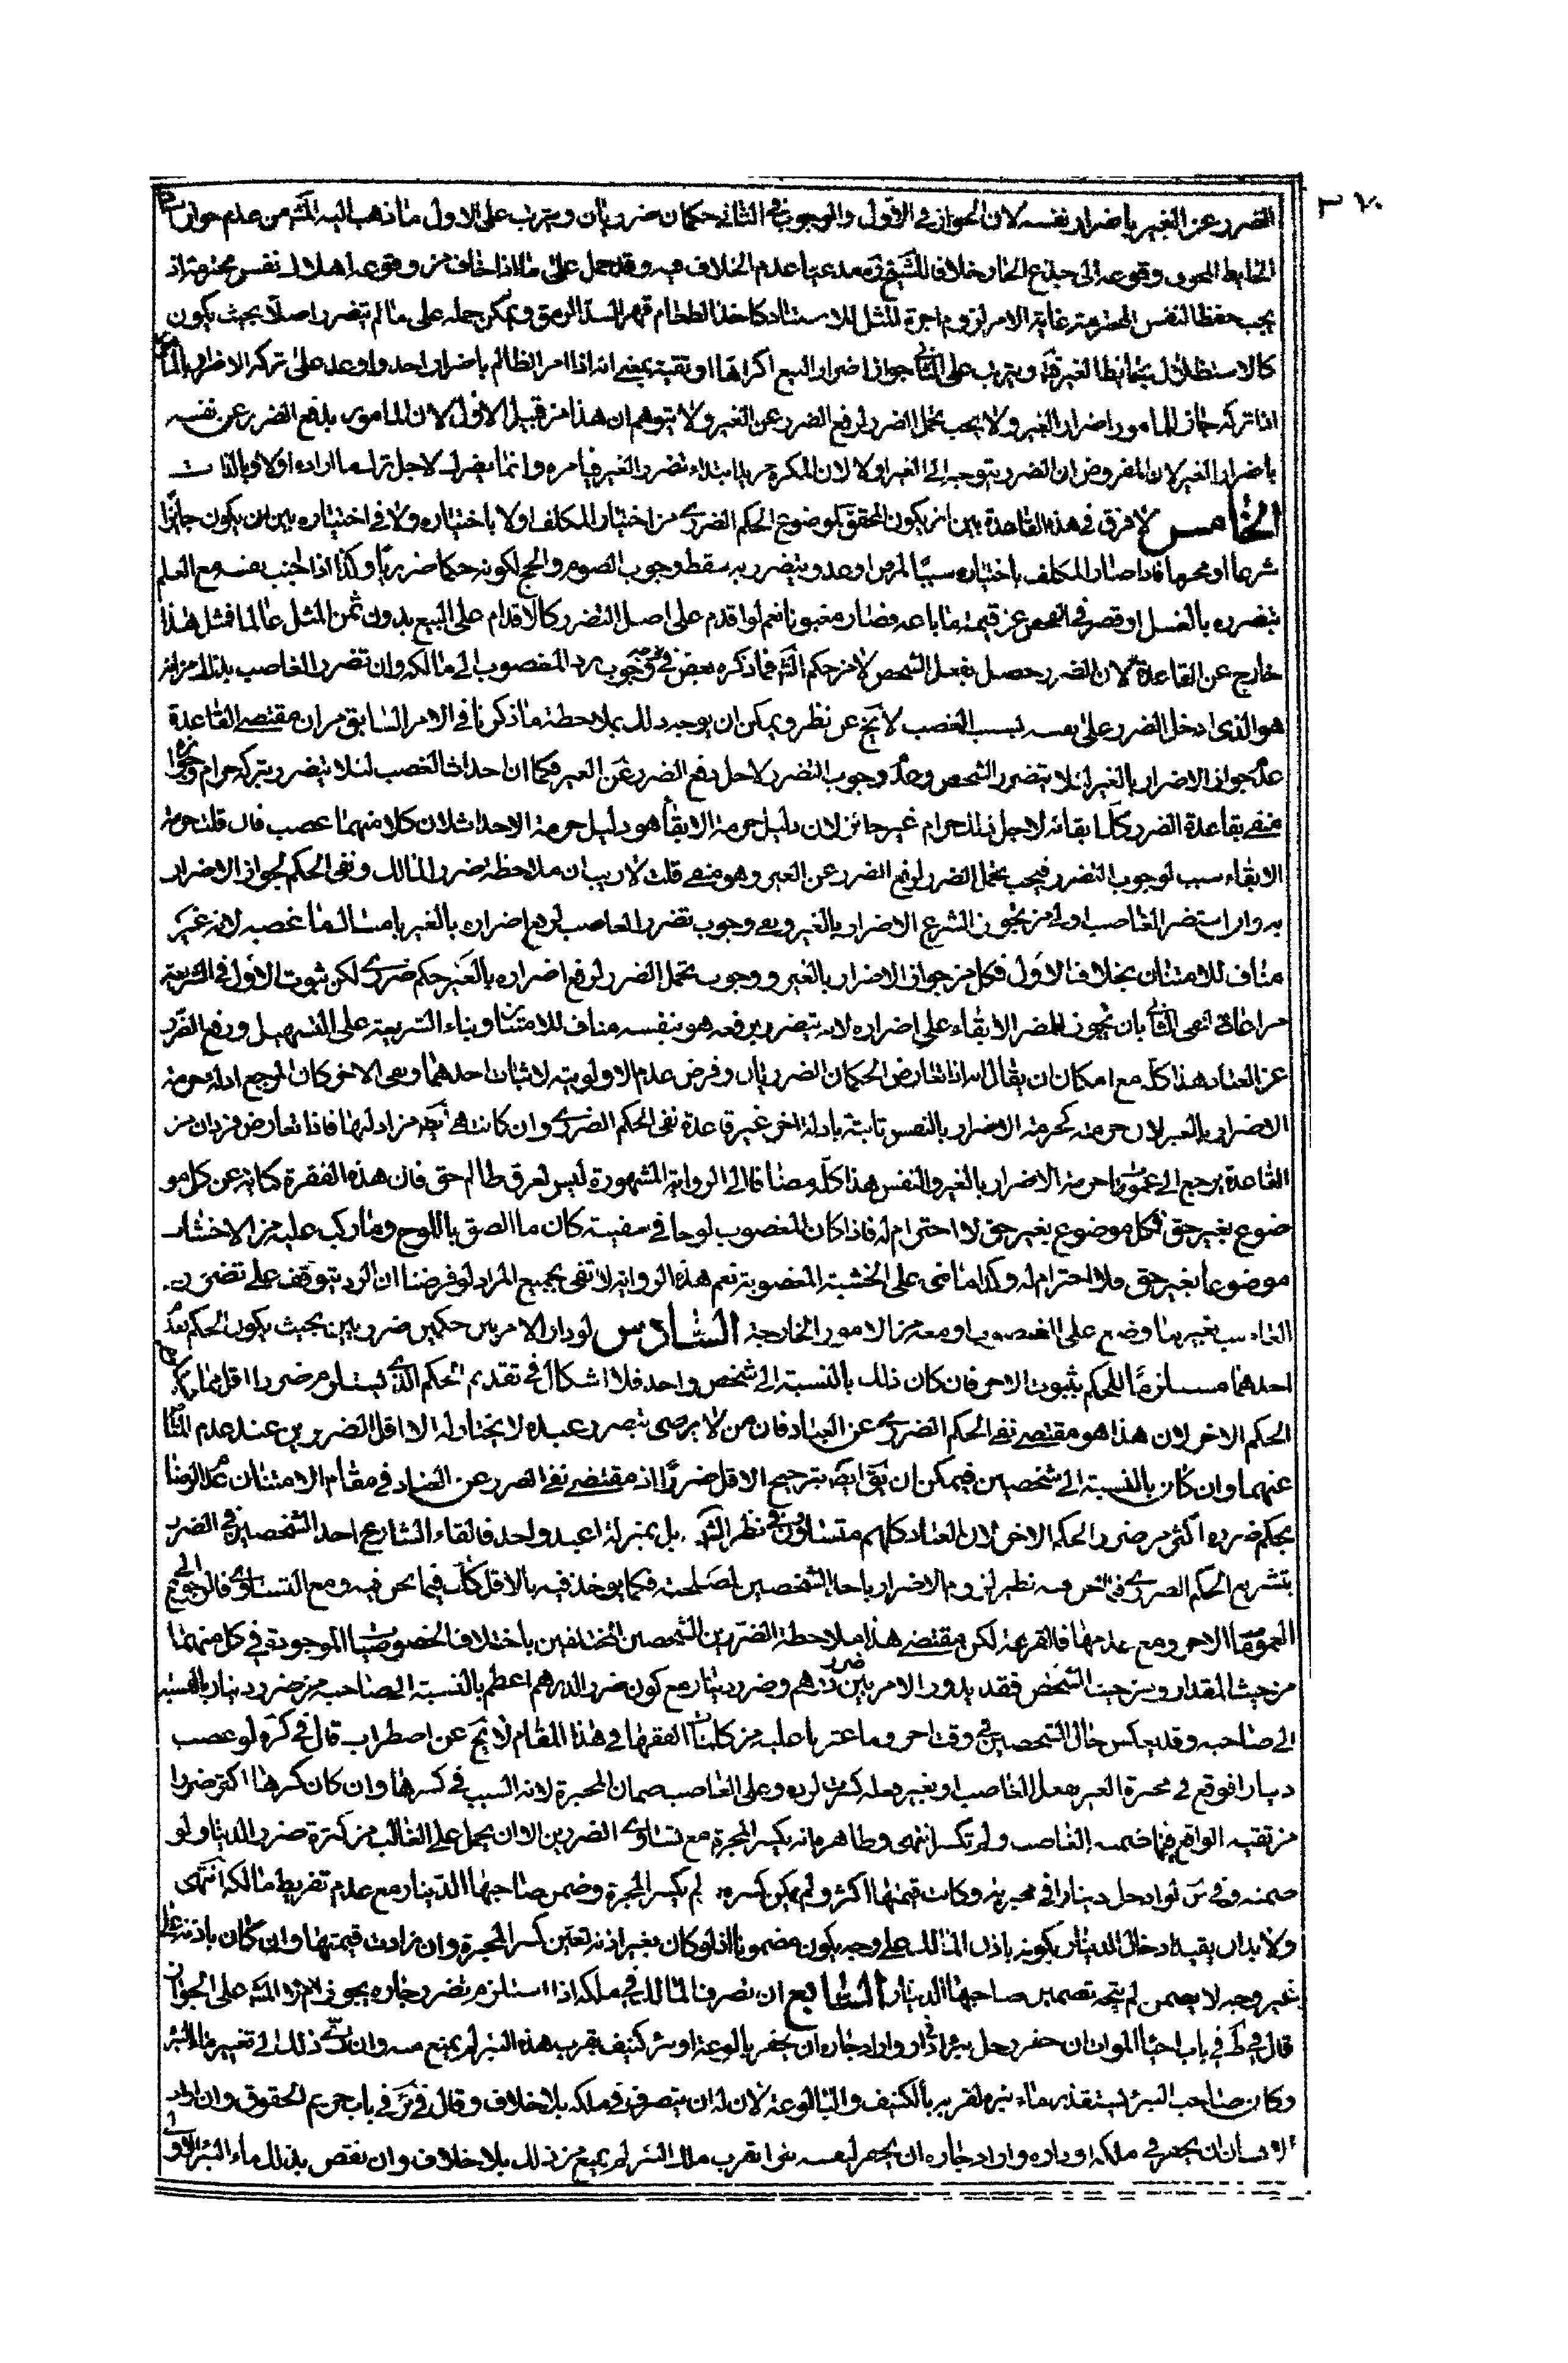 الضرر عن الغير باضرار نفسه لان الجواز في الاول والوجوب في الثاني حكمان ضرريان ويترتب على الاول ما ذهب اليه المش من عدم جواز
الحايط المخوف وقوعه الى جذع الجار خلافا للشيخ ره مدعيا عدم الخلاف فيه وقد حمل على ما اذا خاف من وقوعه اهلاك نفس محترمة اذ
يجب حفظ النفس المحترمة غاية الامر لزوم اجرة المثل للاستناد كاخذ الطعام قهرا لسد الرمق ويمكن حمله على ما لم يتضرر اصلا بحيث يكون
كالاستظلال بحايط الغير فت ويترتب على الثاني جواز اضرار الغير اكراها او تقية بمعنى انه اذا امر الظالم باضرار احد واوعد على تركه الاضرار بالمامور
اذا تركه جاز للمامور اضرار الغير ولا يجب تحمل الضرر لرفع الضرر عن الغير ولا يتوهم ان هذا من قبيل الاول لان المامور يدفع الضرر عن نفسه
باضرار الغير لان المفروض ان الضرر يتوجه الى الغير اولا لان المكره مريد ابتداء تضرر الغير فيامره وانما يضره لاجل ترك ما اراده اولا وبالذات
الخامس لا فرق في هذه القاعدة بين ان يكون المحقق لموضوع الحكم الضرري من اختيار المكلف او لا باختياره ولا في اختياره بين ان يكون جائزا
شرعا او محرما فاذا صار المكلف باختياره سببا لمرض او عدو يتضرر به سقط وجوب الصوم والحج لكونه حكما ضرريا وكذا اذا اجنب نفسه مع العلم
بتضرره بالغسل او قصر في الفحص عن قيمة ما باعه فصار مغبونا نعم لو اقدم على اصل التضرر كالاقدام على البيع بدون ثمن المثل عالما فمثل هذا
خارج عن القاعدة لان الضرر حصل بفعل الشخص لا من حكم الش فما ذكره بعض في وجه وجوب رد المغصوب الى مالكه وان تضرر الغاصب بذلك من انه
هو الذي ادخل الضرر على نفسه بسبب الغصب لا يخ عن نظر ويمكن ان يوجه ذلك بملاحظة ما ذكرنا في الامر السابق من ان مقتضى القاعدة
عدم جواز الاضرار بالغير لئلا يتضرر الشخص وعدم وجوب التضرر لاجل دفع الضرر عن الغير فكما ان احداث الغصب لئلا يتضرر بتركه حرام
منفي بقاعدة الضرر كك ابقائه لاجل ذلك حرام غير جائز لان دليل حرمة الابقاء هو دليل حرمة الاحداث لان كلا منهما غصب فان قلت حرمة
الابقاء سبب لوجوب التضرر فيجب تحمل الضرر لرفع الضرر عن الغير وهو منفي قلت لا ريب ان ملاحظة ضرر المالك ونفي الحكم لجواز الاضرار
به وان استضر الغاصب اولى من تجويز الشرع الاضرار بالغير ونفي وجوب تضرر الغاصب لدفع اضراره بالغير بامساك ما غصبه لانه غير
مناف للامتنان بخلاف الاول فكل من جواز الاضرار بالغير ووجوب تحمل الضرر لرفع اضراره بالغير حكم ضرري لكن ثبوت الاول في الشريعة
مراعاة لنفي الثاني بان يجوز للمضر الابقاء على اضراره لانه يتضرر برفعه هو بنفسه مناف للامتنان وبناء الشريعة على التسهيل ورفع الضرر
عن العباد هذا كله مع امكان ان يقال انه اذا تعارض الحكمان الضرريان وفرض عدم الاولوية لاثبات احدهما ونفي الاخر كان المرجع ادلة حرمة
الاضرار بالغير لان حرمته كحرمة الاضرار بالنفس ثابتة بادلة اخر غير قاعدة نفي الحكم الضرري وان كانت هي ايض من ادلتها فاذا تعارض فردان من
القاعدة يرجع الى عمومات حرمة الاضرار بالغير والنفس هذا كله مضافا الى الرواية المشهورة ليس لعرق ظالم حق فان هذه الفقرة كناية عن كل مو
ضوع بغير حق فكل موضوع بغير حق لا احترام له فاذا كان المغصوب لوحا في سفينة كان ما الصق باللوح وما ركب عليه من الاخشاب
موضوعا بغير حق فلا احترام له وكذا ما بنى على الخشبة المغصوبة نعم هذه الرواية لا تفي بجميع المراد لو فرضنا ان الرد يتوقف على تضرر
الغاصب بغير ما وضع على المغصوب او معه من الامور الخارجة السادس لو دار الامر بين حكمين ضرريين بحيث يكون الحكم بعدم
احدهما مستلزما للحكم بثبوت الاخر فان كان ذلك بالنسبة الى شخص واحد فلا اشكال في تقديم الحكم الذي يستلزم ضررا اقل مما
الحكم الاخر لان هذا هو مقتضى نفي الحكم الضرري عن العباد فان من لا يرضى بتضرر عبده لا يختار له الا اقل الضررين عند عدم المناص
عنهما وان كان بالنسبة الى شخصين فيمكن ان يق ايض بترجيح الاقل ضررا اذ مقتضى نفي الضرر عن العباد في مقام الامتنان عدم الرضا
بحكم ضرره اكثر من ضرر الحكم الاخر لان العباد كلهم متساوون في نظر الش بل بمنزلة عبد واحد فالقاء الشارع احد الشخصين في الضرر
بتشريع الحكم الضرري في نظير لزوم الاضرار باحد الشخصين لمصلحته فكما يوخذ فيه بالاقل كك فيما نحن فيه ومع التساوي فالرجوع الى
العمومات الاخر ومع عدمها فالقرعة لكن مقتضى هذا ملاحظة الضررين الشخصيين المختلفين باختلاف الخصوصيات الموجودة في كل منهما
من حيث المقدار ومن حيث الشخص فقد يدور الامر بين ضرر درهم وضرر دينار مع كون ضرر الدرهم اعظم بالنسبة الى صاحبه من ضرر دينار بالنسبة
الى صاحبه وقد يعكس حال الشخصين في وقت اخر وما عثرنا عليه من كلمات الفقهاء في هذا المقام لا يخ عن اضطراب قال في كره لو غصب
دينارا فوقع في محبرة الغير بفعل الغاصب او بغير فعله كسرت لرده وعلى الغاصب ضمان المحبرة لانه السبب في كسرها وان كان كسرها اكثر ضررا
من تبقية الواقع فيها ضمنه الغاصب ولم تكسر انتهى وظاهره انه يكسر المحبرة مع تساوي الضررين الا ان يحمل على الغالب من كثرة ضرر الدينار لو
ضمنه وفي س لو ادخل دينارا في محبرته وكانت قيمتها اكثر ولم يمكن كسره لم يكسر المحبرة وضمن صاحبها الدينار مع عدم تفريط مالكه انتهى
ولا بد ان يقيد ادخال الدينار بكونه باذن المالك على وجه يكون مضمونا اذ لو كان بغير اذنه تعين كسر المحبرة وان زادت قيمتها وان كان باذنه على
غير وجه لا يضمن لم يتجه تضمين صاحبها الدينار السابع ان تصرف المالك في ملكه اذا استلزم تضرر جاره يجوز ام لا المش على الجواز
قال في ط في باب احياء الموات ان حفر رجل بئرا في داره واراد جاره ان يحفر بالوعة او بئر كنيف بقرب هذه البئر لم يمنع منه وان ادى ذلك الى تغيير ماء البئر
وكان صاحب البئر يستقذر ماء بئره لقربه بالكنيف والبالوعة لان له ان يتصرف في ملكه بلا خلاف وقال في ئر في باب حريم الحقوق وان اراد
الانسان ان يحفر في ملكه او داره واراد جاره ان يحفر لنفسه بئرا بقرب تلك البئر لم يمنع من ذلك بلا خلاف وان نقص بذلك ماء البئر الاولى